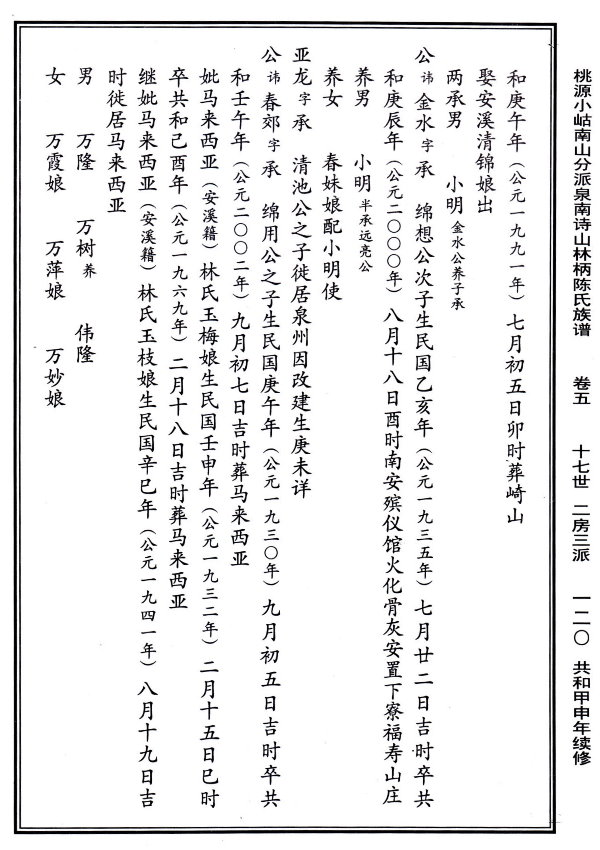 桃源小岵南山分派泉南诗山林柄陈氏族谱 卷五 十七世 二房三派 一二〇 共和甲申年续修
和庚午年（公元一九九一年）七月初五日卯时葬崎山
娶安溪清锦娘出
两承男 小明 金水公养子承
公 讳 金水 字 承 绵想公次子生民国乙亥年（公元一九三五年）七月廿二日吉时卒共
和庚辰年（公元二〇〇〇年）八月十八日酉时南安殡仪馆火化骨灰安置下寮福寿山庄
养男 小明 半承远亮公
养女 春妹娘配小明使
亚龙 字 承 清池公之子徙居泉州因改建生庚未详
公 讳 春郊 字 承 绵用公之子生民国庚午年（公元一九三〇年）九月初五日吉时卒共
和壬午年（公元二〇〇二年）九月初七日吉时葬马来西亚
妣马来西亚（安溪籍）林氏玉梅娘生民国壬申年（公元一九三二年）二月十五日巳时
卒共和己酉年（公元一九六九年）二月十八日吉时葬马来西亚
继妣马来西亚（安溪籍）林氏玉枝娘生民国辛巳年（公元一九四一年）八月十九日吉
时徙居马来西亚
男 万隆 万树 养 伟隆
女 万霞娘 万萍娘 万妙娘